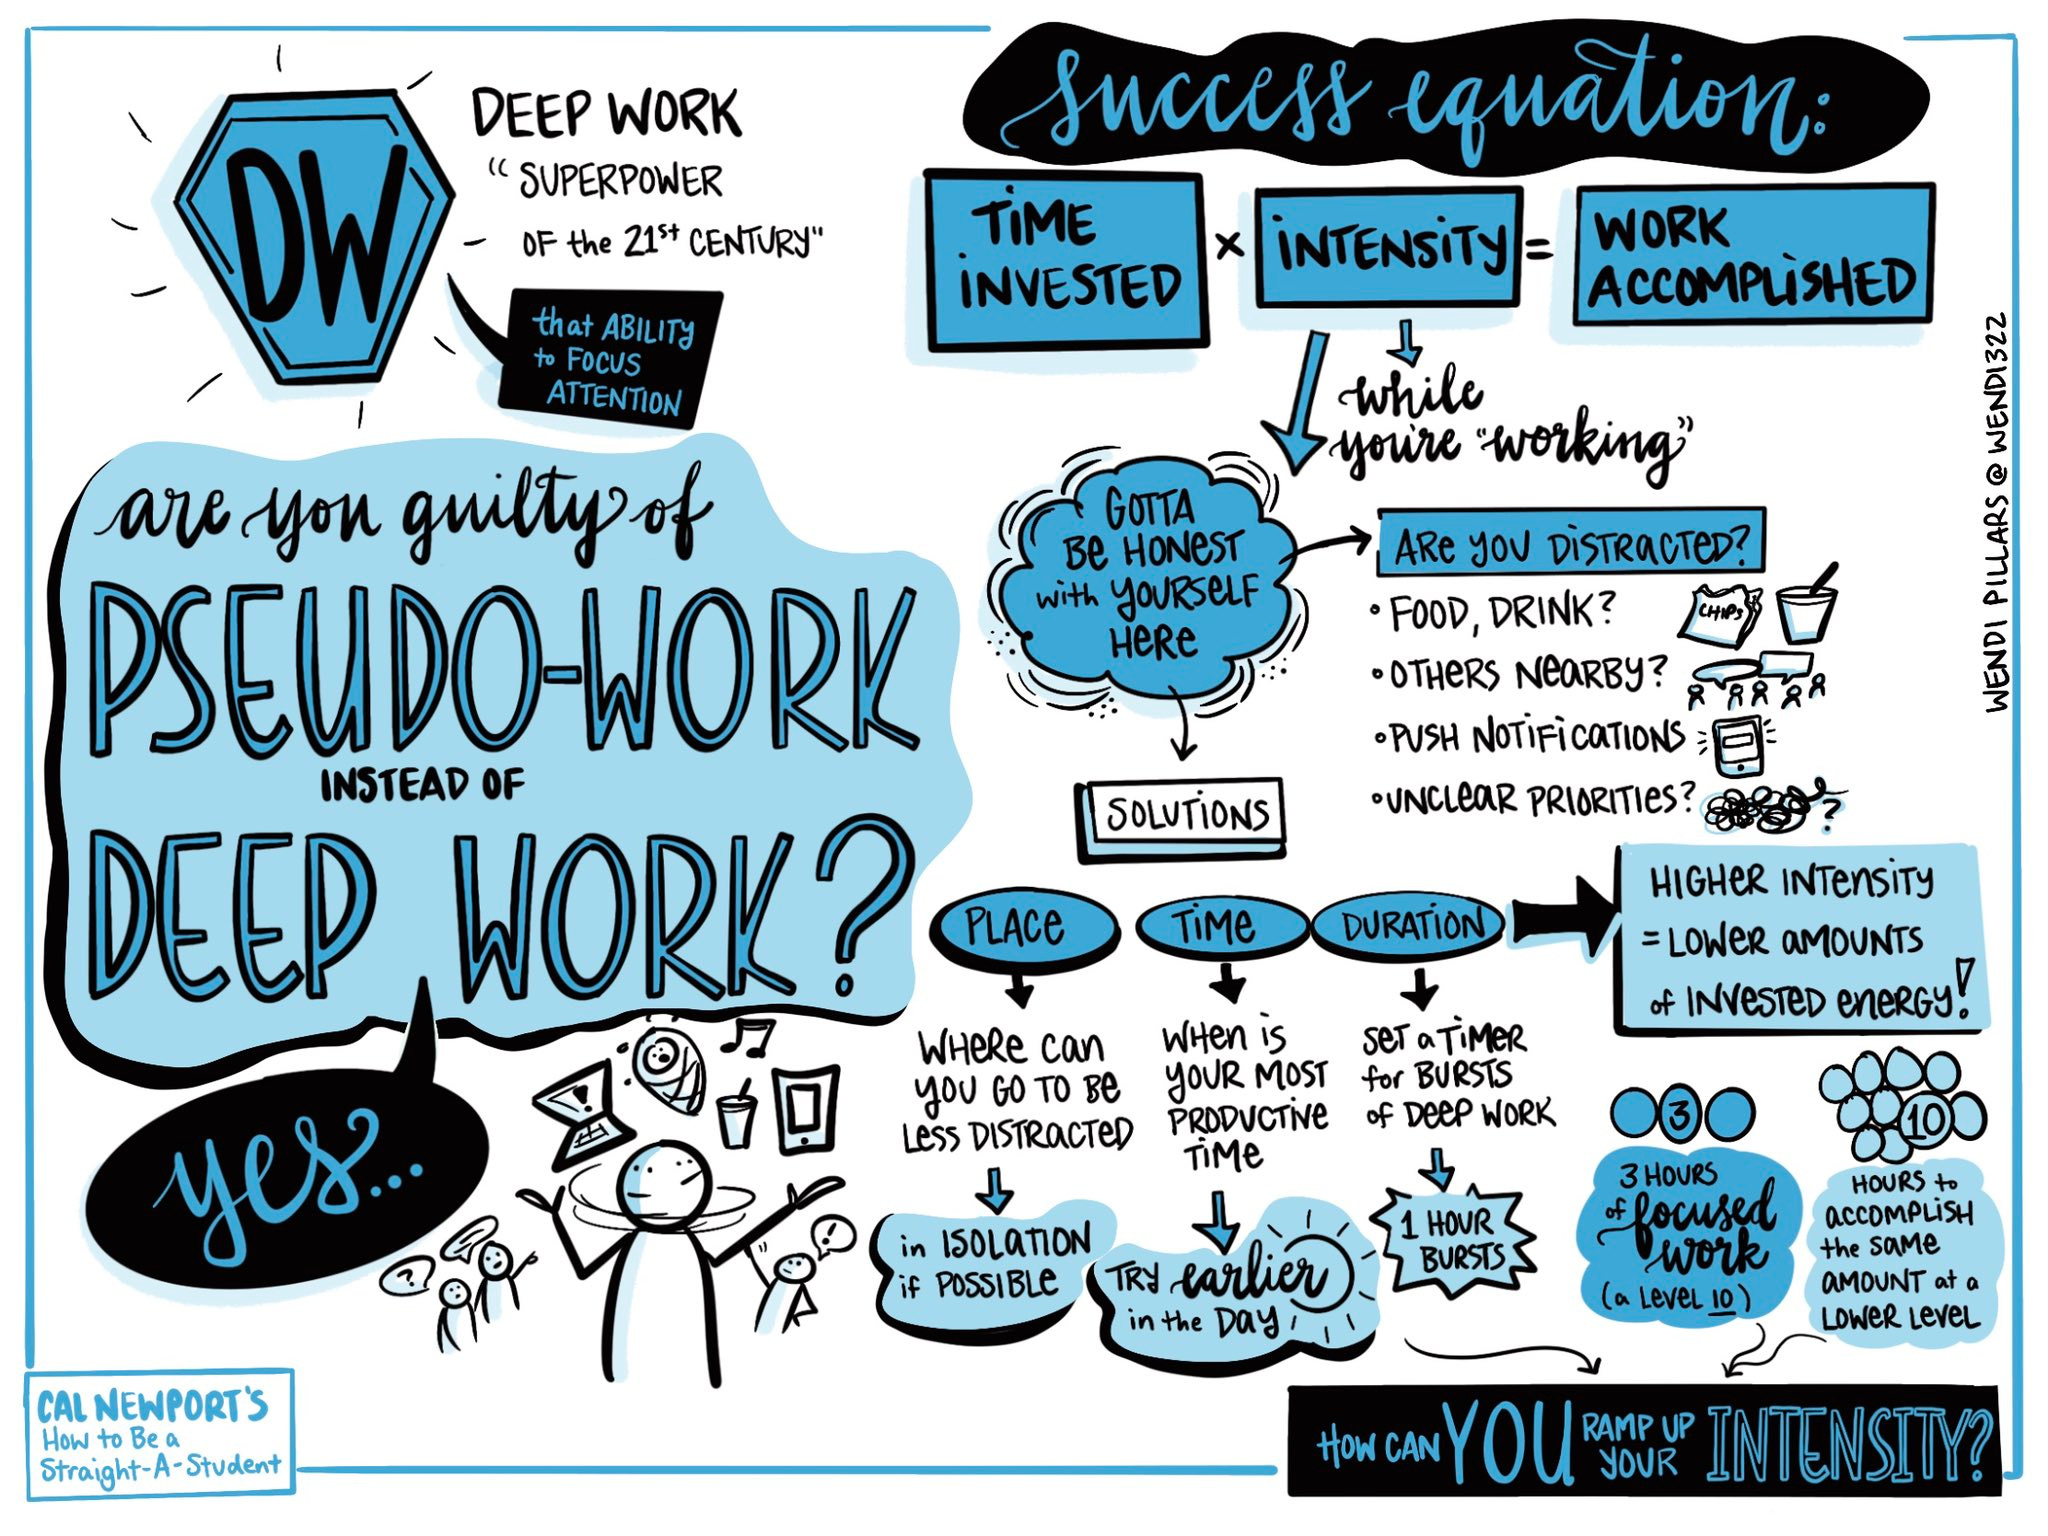 DW
DEEP WORK
"SUPERPOWER
OF the 21st CENTURY"
that ABILITY
to FOCUS
ATTENTION
are you guilty of
PSEUDO-WORK
INSTEAD OF
DEEP WORK?
yes...
?
!
?
!
CAL NEWPORT'S
HOW to BE a
Straight-A-Student
success equation:
TIME
INVESTED
×
INTENSITY
=
WORK
ACCOMPLISHED
while
you're "working"
GOTTA
BE HONEST
with YOURSELF
HERE
ARE YOU DISTRACTED?
• FOOD, DRINK?
CHIPS
• OTHERS NEARBY?
• PUSH NOTIFICATIONS
• UNCLEAR PRIORITIES?
?
SOLUTIONS
PLACE
WHERE CAN
YOU GO TO BE
LESS DISTRACTED
in ISOLATION
if POSSIBLE
TIME
WHEN IS
YOUR MOST
PRODUCTIVE
TIME
TRY earlier
in the DAY
DURATION
SET a TIMER
for BURSTS
of DEEP WORK
1 HOUR
BURSTS
HIGHER INTENSITY
= LOWER AMOUNTS
of INVESTED ENERGY!
3
3 HOURS
of focused
work
(a LEVEL 10)
10
HOURS to
ACCOMPLISH
the SAME
AMOUNT at a
LOWER LEVEL
HOW CAN YOU RAMP UP
YOUR INTENSITY?
WENDI PILLARS @WENDI322